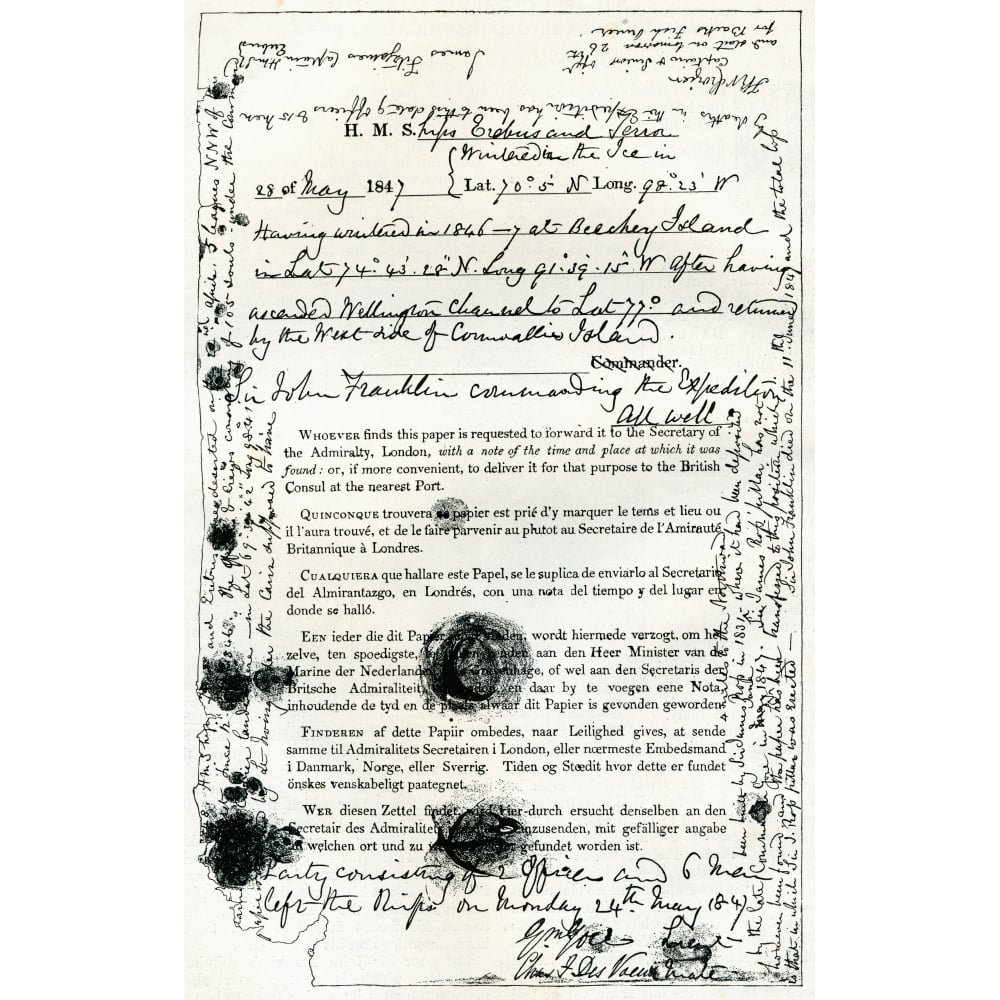 H. M. S.hips Erebus and Terror
Wintered in the Ice in
28 of May 1847 Lat. 70°. 5' N Long. 98°. 23' W
Having wintered in 1846–7 at Beechey Island
in Lat 74°. 43'. 28" N. Long 91°. 39'. 15" W After having
ascended Wellington Channel to Lat 77° and returned
by the West side of Cornwallis Island.
Commander.
Sir John Franklin commanding the Expedition
All well
WHOEVER finds this paper is requested to forward it to the Secretary of
the Admiralty, London, with a note of the time and place at which it was
found: or, if more convenient, to deliver it for that purpose to the British
Consul at the nearest Port.
QUINCONQUE trouvera ce papier est prié d'y marquer le tems et lieu ou
il l'aura trouvé, et de le faire parvenir au plutot au Secretaire de l'Amirauté
Britannique à Londres.
CUALQUIERA que hallare este Papel, se le suplica de enviarlo al Secretario
del Almirantazgo, en Londrés, con una nota del tiempo y del lugar en
donde se halló.
EEN ieder die dit Papier vinden, wordt hiermede verzogt, om het
zelve, ten spoedigste, aan den Heer Minister van de
Marine der Nederlanden of wel aan den Secretaris der
Britsche Admiraliteit, en daar by te voegen eene Nota,
inhoudende de tyd en de plaats alwaar dit Papier is gevonden geworden
FINDEREN af dette Papiir ombedes, naar Leilighed gives, at sende
samme til Admiralitets Secretairen i London, eller nœrmeste Embedsmand
i Danmark, Norge, eller Sverrig. Tiden og Stœdit hvor dette er fundet
önskes venskabeligt paategnet.
WER diesen Zettel findet, hier-durch ersucht denselben an den
Secretair des Admiralitets einzusenden, mit gefälliger angabe
an welchen ort und zu gefundet worden ist.
Party consisting of 2 Officers and 6 Men
left the Ships on Monday 24th May 1847
Gm Gore Lieut
Chas F Des Voeux Mate
1848 HMShips and Erebus were deserted on the 22nd April, 5 leagues NNW of
since 1846. The officers & crews consisting of 105 souls under the Command
landed here in Lat 69° 37' 42" Long 98° 41'
by Lt Irving under the Cairn supposed to have
been built by Sir James Ross in 1831 4 miles to the Northward where it had been deposited
by the late Commander Gore in June 1847. Sir James Ross' pillar has not
however been found and the paper has been transferred to this position which
is that in which Sir J. Ross pillar was erected — Sir John Franklin died on the 11th June 1847 and the total loss
by deaths in the Expedition has been to this date 9 officers & 15 men
James Fitzjames Captain HMS Erebus
F R M Crozier
Captain & Senior Offr
and start on tomorrow 26th
for Backs Fish River